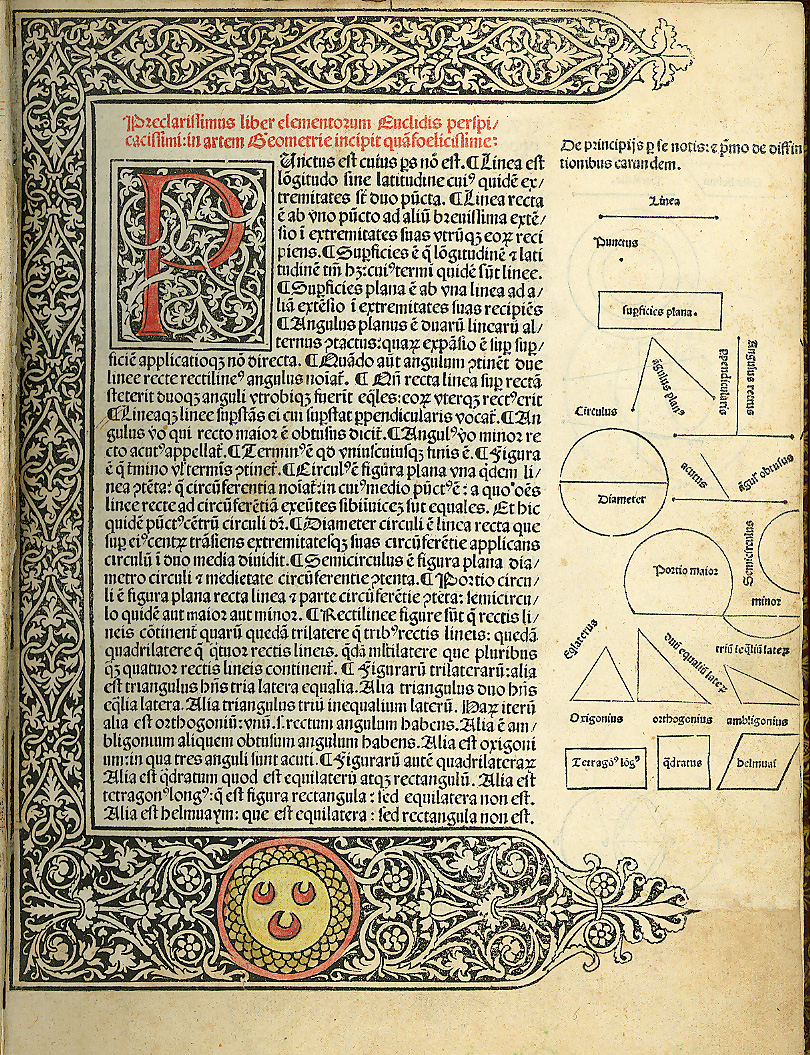 Preclarissimus liber elementorum Euclidis perspi/
cacissimi: in artem Geometrie incipit quãfoelicissime:
Punctus est cuius ps nõ est. ¶ Linea est
lõgitudo sine latitudine cuiꝰ quidẽ ex/
tremitates sũt duo pũcta. ¶ Linea recta
ẽ ab vno pũcto ad aliũ breuissima extẽ/
sio ĩ extremitates suas vtrũqꝫ eoꝝ reci
piens. ¶ Supficies ẽ q̃ lõgitudinẽ ⁊ lati
tudinẽ tm̃ hꝫ: cuiꝰ termi quidẽ sũt linee.
¶ Supficies plana ẽ ab vna linea ad a/
liã extẽsio ĩ extremitates suas recipiẽs
¶ Angulus planus ẽ duarũ linearũ al/
ternus ↄtactus: quaꝝ expãsio ẽ sup sup/
ficiẽ applicatioqꝫ nõ directa. ¶ Quãdo aũt angulum ↄtinẽt due
linee recte rectilineꝰ angulus noĩat̃. ¶ Qñ recta linea sup rectã
steterit duoqꝫ anguli vtrobiqꝫ fuerĩt eq̃les: eoꝝ vterqꝫ rectꝰ erit
¶ Lineaqꝫ linee supstãs ei cui supstat ppendicularis vocat̃. ¶ An
gulus ṽo qui recto maior ẽ obtusus dicit̃. ¶ Angulꝰ ṽo minor re
cto acutꝰ appellat̃. ¶ Terminꝰ ẽ qd̃ vniuscuiusqꝫ finis ẽ. ¶ Figura
ẽ q̃ tmino vl̃ termĩs ↄtinet̃. ¶ Circulꝰ ẽ figura plana vna qdem li/
nea ↄtẽta: q̃ circũferentia noĩat̃: in cuiꝰ medio pũctꝰ ẽ: a quo oẽs
linee recte ad circũferẽtiã exeũtes sibiinuicẽ sũt equales. Et hic
quidẽ pũctꝰ cẽtrũ circuli dr̃. ¶ Diameter circuli ẽ linea recta que
sup eiꝰ centꝝ trãsiens extremitatesqꝫ suas circũferẽtie applicans
circulũ ĩ duo media diuidit. ¶ Semicirculus ẽ figura plana dia/
metro circuli ⁊ medietate circũferentie ↄtenta. ¶ Portio circu/
li ẽ figura plana recta linea ⁊ parte circũferẽtie ↄtẽta: semicircu/
lo quidẽ aut maior aut minor. ¶ Rectilinee figure sũt q̃ rectis li/
neis cõtinent̃ quarũ quedã trilatere q̃ tribꝰ rectis lineis: quedã
quadrilatere q̃ qtuor rectis lineis. q̃dã mltilatere que pluribus
qꝫ quatuor rectis lineis continent̃. ¶ Figurarũ trilaterarũ: alia
est triangulus hñs tria latera equalia. Alia triangulus duo hñs
eq̃lia latera. Alia triangulus triũ inequalium laterũ. Haꝝ iterũ
alia est orthogoniũ: vnũ .s. rectum angulum habens. Alia ẽ am/
bligonium aliquem obtusum angulum habens. Alia est oxigoni
um: in qua tres anguli sunt acuti. ¶ Figurarũ autẽ quadrilateraꝝ
Alia est q̃dratum quod est equilaterũ atqꝫ rectangulũ. Alia est
tetragonꝰ longꝰ: q̃ est figura rectangula: sed equilatera non est.
Alia est helmuaym: que est equilatera: sed rectangula non est.
De principijs p se notis: ⁊ pmo de diffin
tionibus earundem.
Linea
Punctus
supficies plana.
ãgulus planꝰ
ppendicularis
angulus rectus
Circulus
Diameter
acutus
ãguꝰ obtusus
Portio maior
Semicirculus
minor
Eqlaterus
duũ equaliũ lateꝝ
triũ ĩeq̃liũ lateꝝ
Oxigonius
orthogonius
ambligonius
Tetragõꝰ lõgꝰ
q̃dratus
helmuaĩ